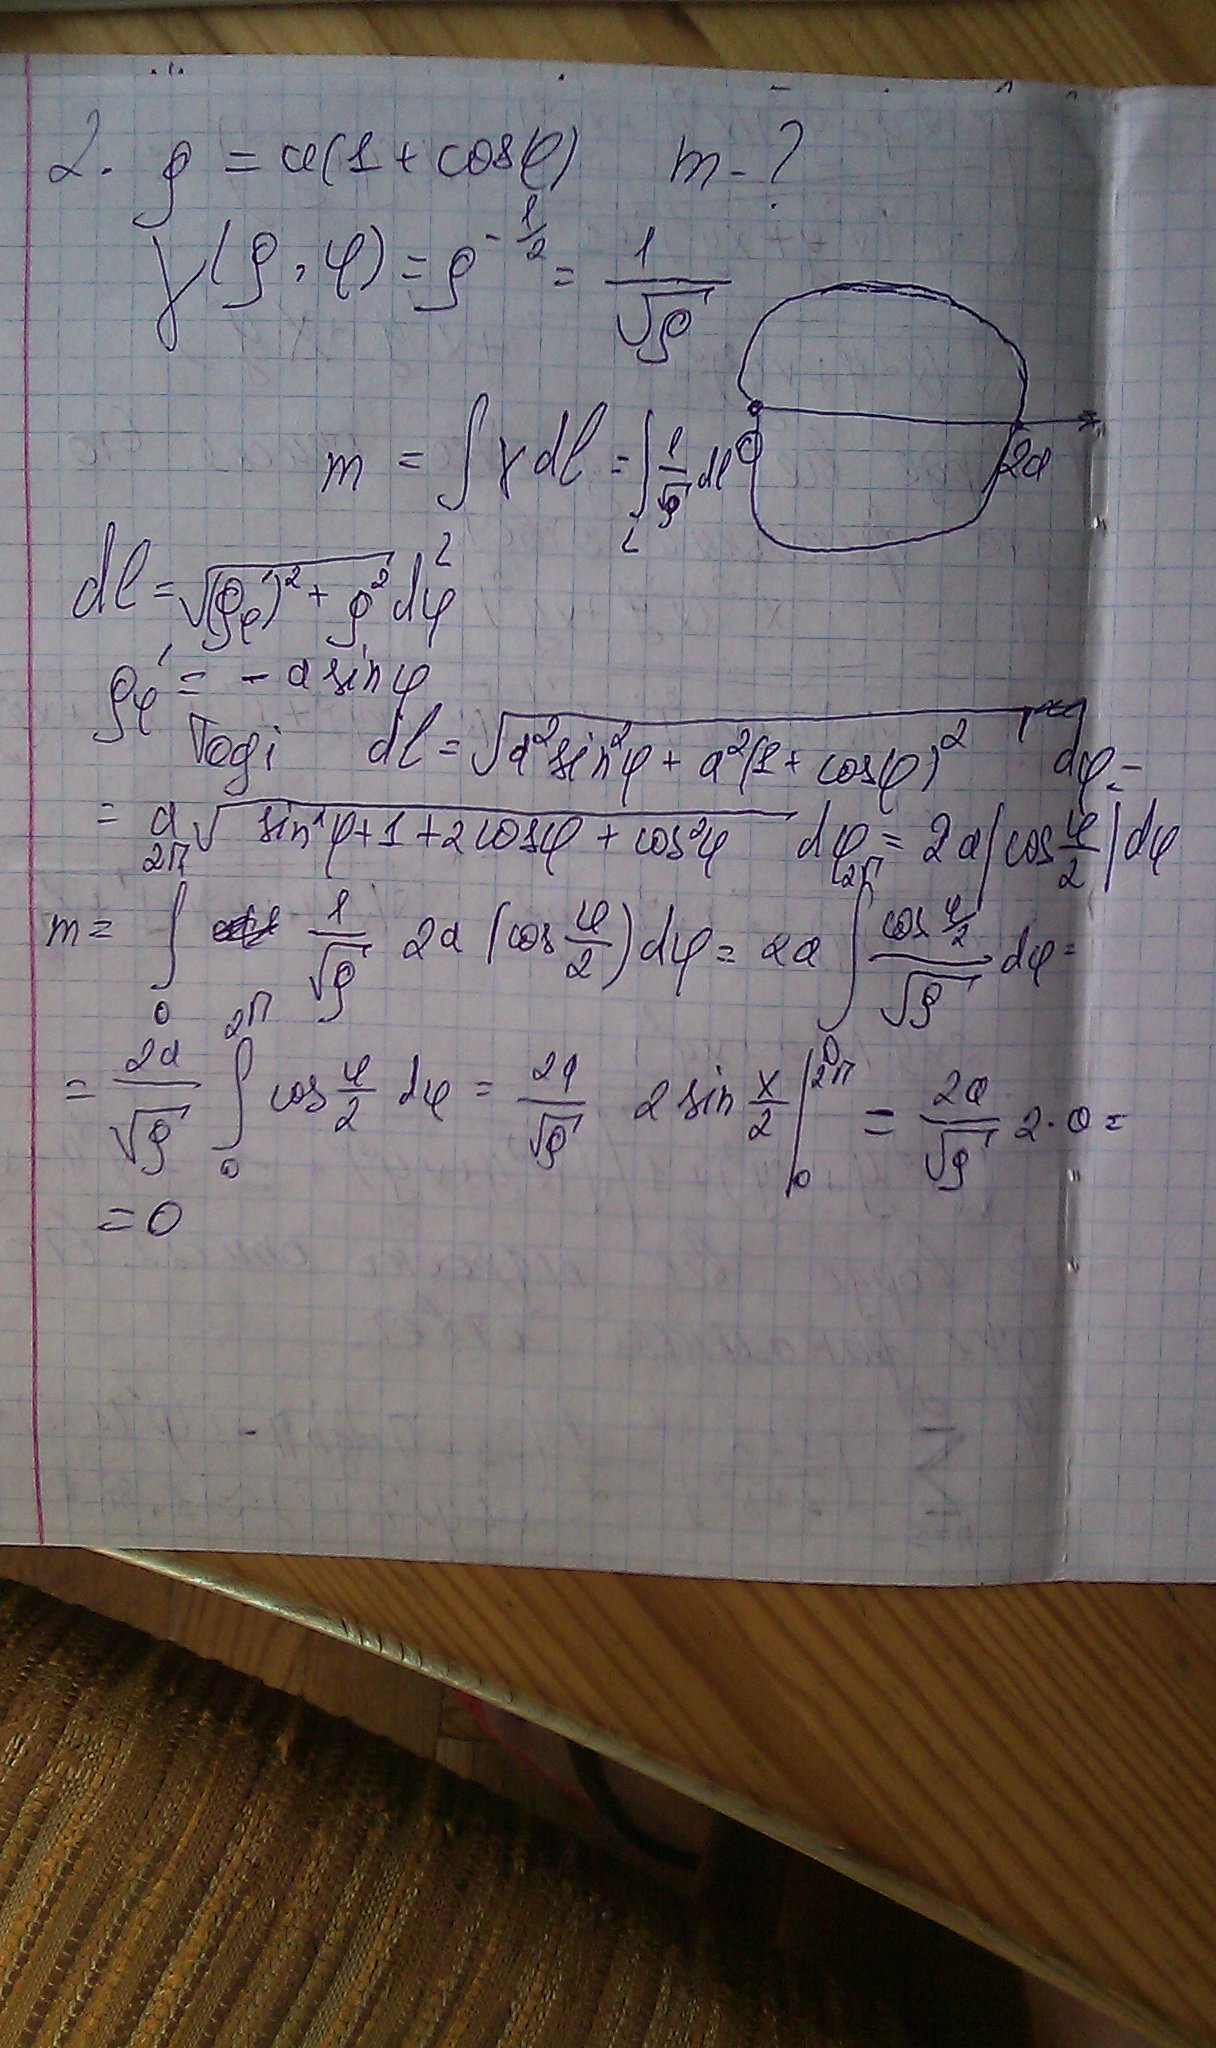 2. ρ = a(1 + cosφ) m - ?
γ(ρ, φ) = ρ^{-1/2} = 1/√ρ
m = ∫ γ dl = ∫_L 1/√ρ dl
0 2a
L
dl = √((ρφ')² + ρ²) dφ
ρφ' = - a sinφ
Тоді dl = √(a² sin²φ + a²(1 + cosφ)²) dφ =
= a√(sin²φ + 1 + 2cosφ + cos²φ) dφ = 2a|cos φ/2|dφ
m = ∫_0^{2π} 1/√ρ 2a (cos φ/2) dφ = 2a ∫_0^{2π} cos φ/2 / √ρ dφ =
= 2a/√ρ ∫_0^{2π} cos φ/2 dφ = 2a/√ρ 2 sin x/2 |_0^{2π} = 2a/√ρ 2·0 =
= 0